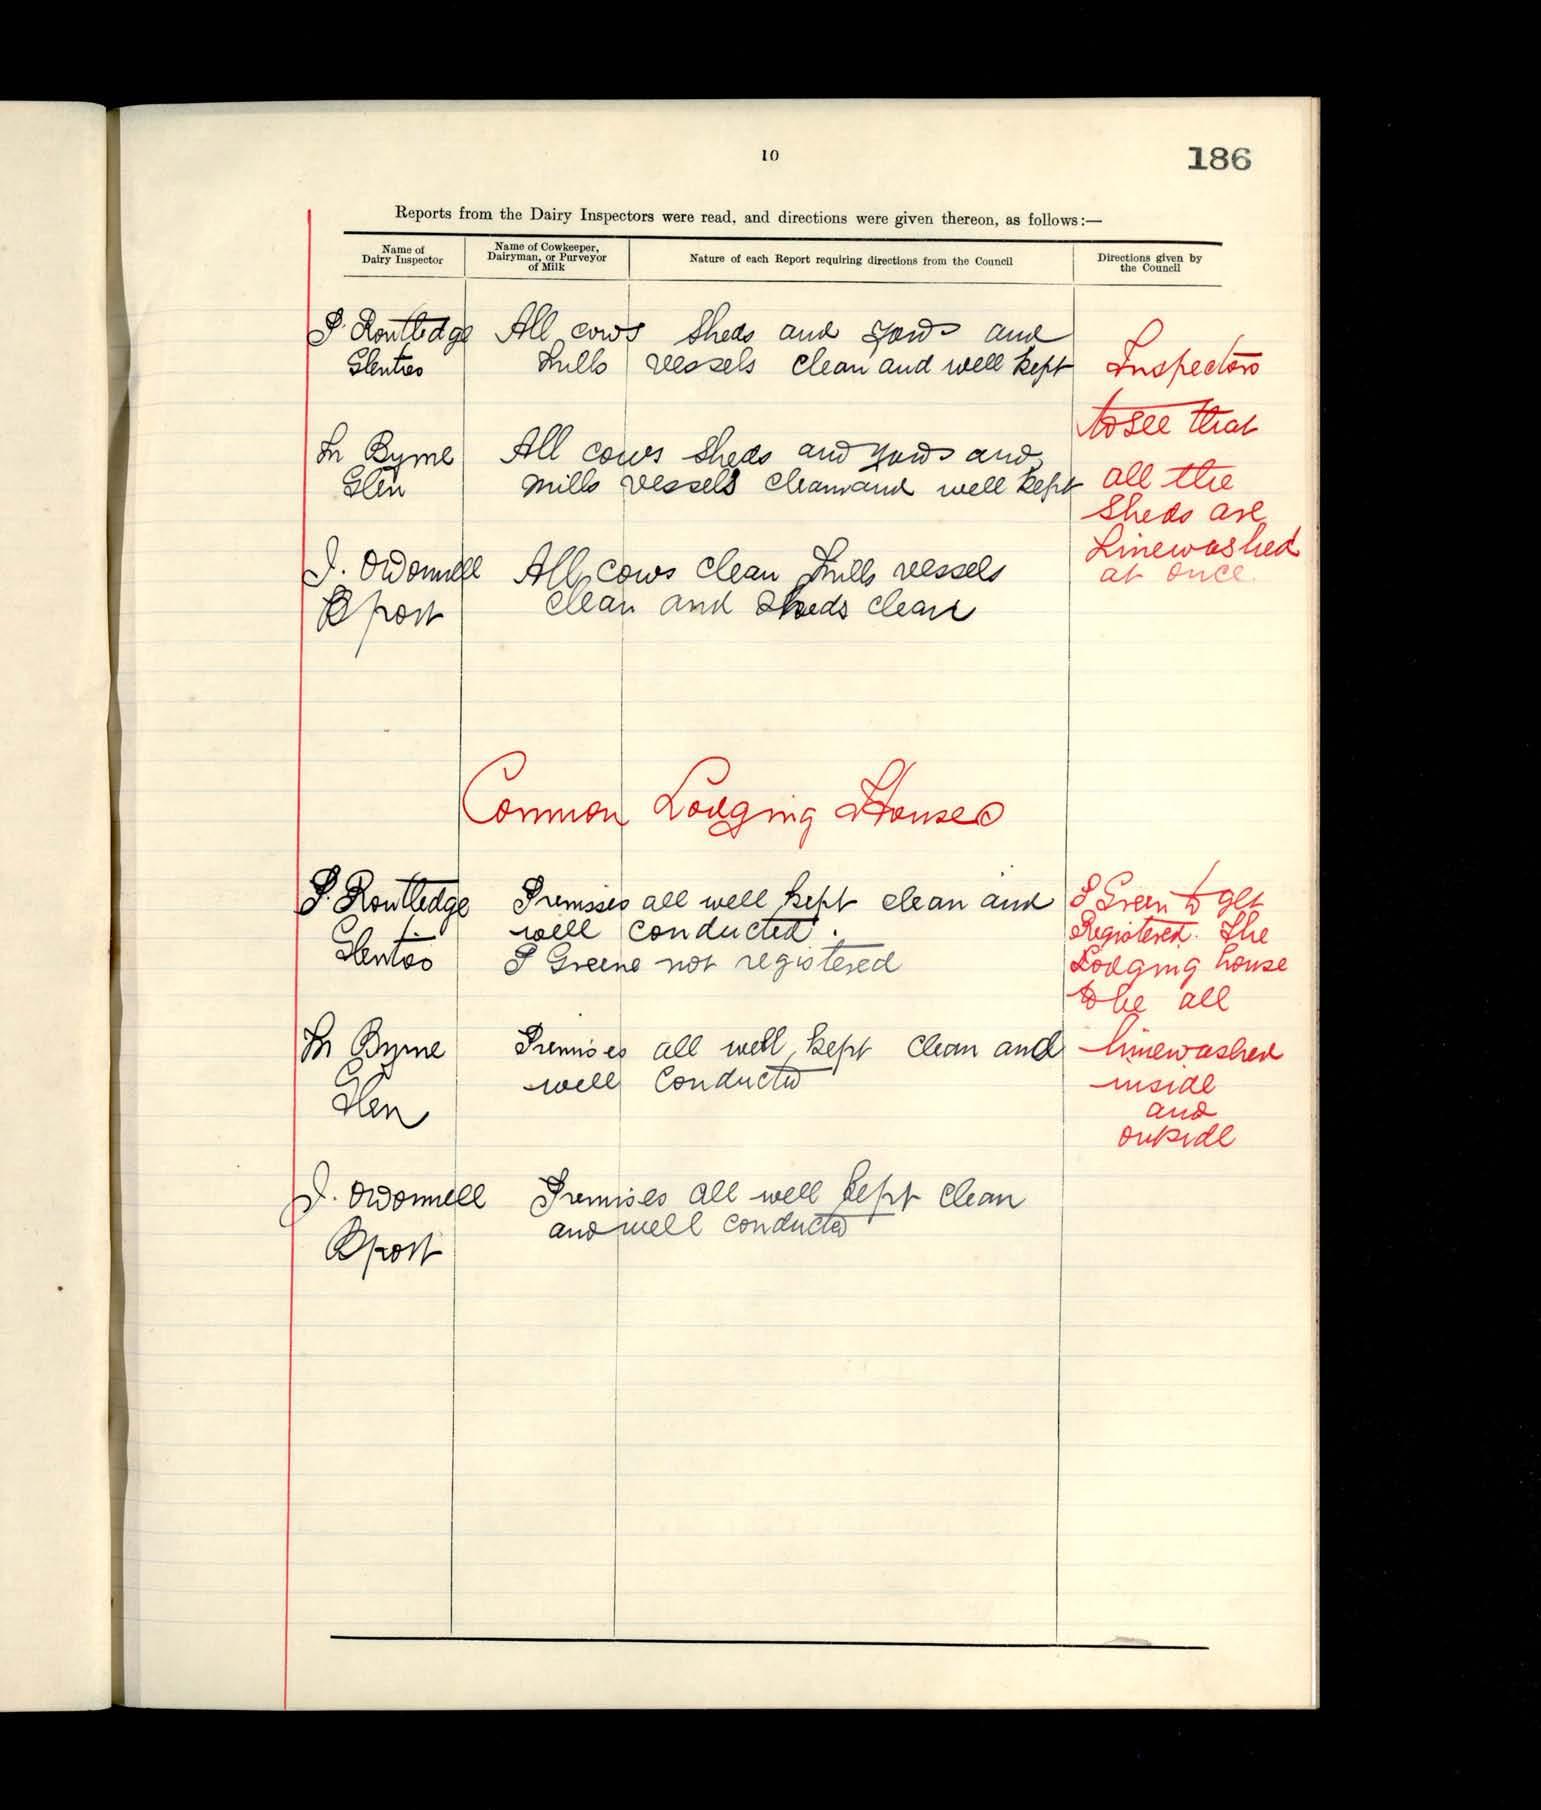 10
186
Reports from the Dairy Inspectors were read, and directions were given thereon, as follows:—
Name of Dairy Inspector
Name of Cowkeeper, Dairyman, or Purveyor of Milk
Nature of each Report requiring directions from the Council
Directions given by the Council
P. Routledge
Glenties
All cows sheds and yards and
milk vessels clean and well kept
M Byrne
Glen
All cows sheds and yards and
milk vessels clean and well kept
J. ODonnell
Bport
All cows clean milk vessels
clean and sheds clean
Inspectors
to see that
all the
sheds are
limewashed
at once.
Common Lodging Houses
P. Routledge
Glenties
Premises all well kept clean and
well conducted.
Greene not registered
M Byrne
Glen
Premises all well kept clean and
well conducted
J. ODonnell
Bport
Premises all well kept clean
and well conducted
Green to get
Registered. The
Lodging house
to be all
limewashed
inside
and
outside